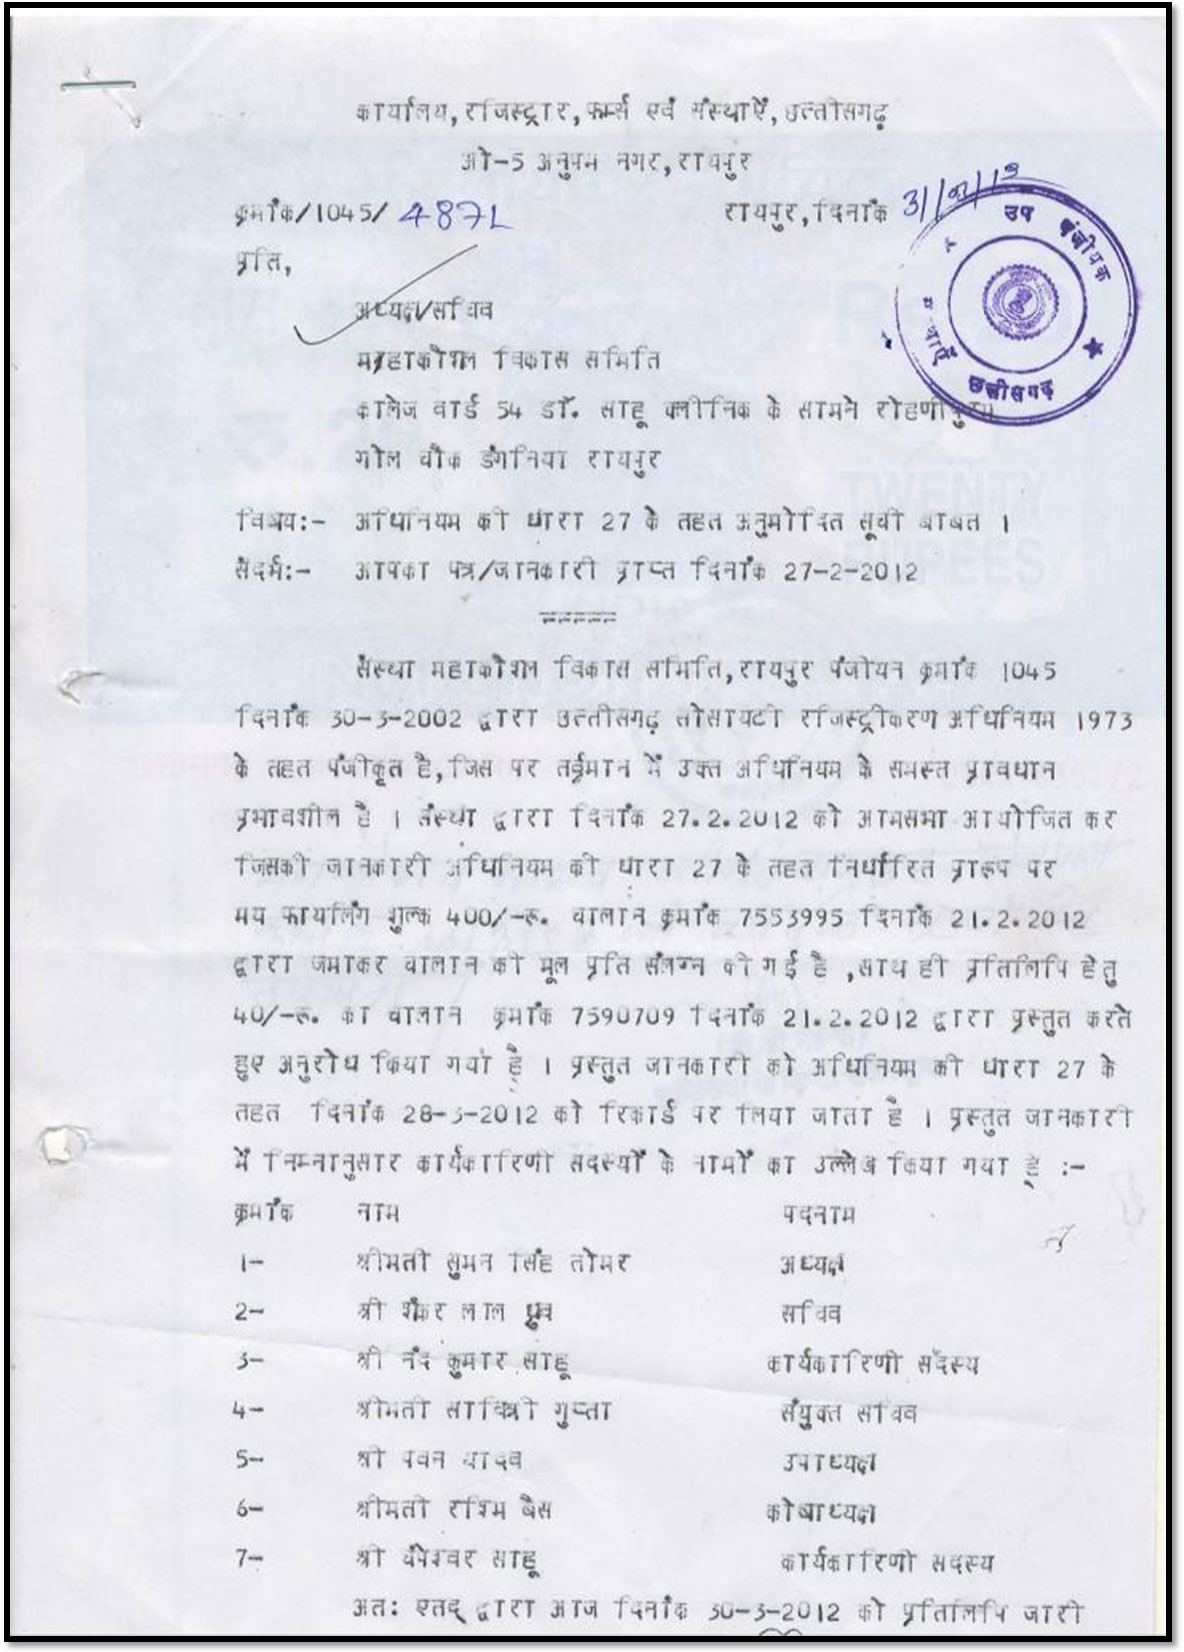 कार्यालय, रजिस्ट्रार, फर्म्स एवं संस्थाऐं, छत्तीसगढ़
ओ-5 अनुपम नगर, रायपुर
क्रमांक/1045/ 4871 रायपुर, दिनांक
उप पंजीयक
छत्तीसगढ़
प्रति,
अध्यक्ष/सचिव
महाकोशल विकास समिति
कालेज वार्ड 54 डॉ. साहू क्लीनिक के सामने रोहणीपुरम
गोल चौक डंगनिया रायपुर
विषय:- अधिनियम की धारा 27 के तहत अनुमोदित सूची बाबत ।
संदर्भ:- आपका पत्र/जानकारी प्राप्त दिनांक 27-2-2012
=====
संस्था महाकोशल विकास समिति, रायपुर पंजीयन क्रमांक 1045
दिनांक 30-3-2002 द्वारा छत्तीसगढ़ सोसायटी रजिस्ट्रीकरण अधिनियम 1973
के तहत पंजीकृत है, जिस पर वर्तमान में उक्त अधिनियम के समस्त प्रावधान
प्रभावशील है । संस्था द्वारा दिनांक 27.2.2012 को आमसभा आयोजित कर
जिसकी जानकारी अधिनियम की धारा 27 के तहत निर्धारित प्रारूप पर
मय फायलिंग शुल्क 400/-रू. चालान क्रमांक 7553995 दिनांक 21.2.2012
द्वारा जमाकर चालान की मूल प्रति संलग्न की गई है ,साथ ही प्रतिलिपि हेतु
40/-रू. का चालान क्रमांक 7590709 दिनांक 21.2.2012 द्वारा प्रस्तुत करते
हुए अनुरोध किया गया है । प्रस्तुत जानकारी को अधिनियम की धारा 27 के
तहत दिनांक 28-3-2012 को रिकार्ड पर लिया जाता है । प्रस्तुत जानकारी
में निम्नानुसार कार्यकारिणी सदस्यों के नामों का उल्लेख किया गया है :-
क्रमांक नाम पदनाम
1- श्रीमती सुमन सिंह तोमर अध्यक्ष
2- श्री शंकर लाल ध्रुव सचिव
3- श्री नंद कुमार साहू कार्यकारिणी सदस्य
4- श्रीमती सावित्री गुप्ता संयुक्त सचिव
5- श्री पवन यादव उपाध्यक्ष
6- श्रीमती रश्मि बैस कोषाध्यक्ष
7- श्री चंपेश्वर साहू कार्यकारिणी सदस्य
अतः एतद् द्वारा आज दिनांक 30-3-2012 को प्रतिलिपि जारी